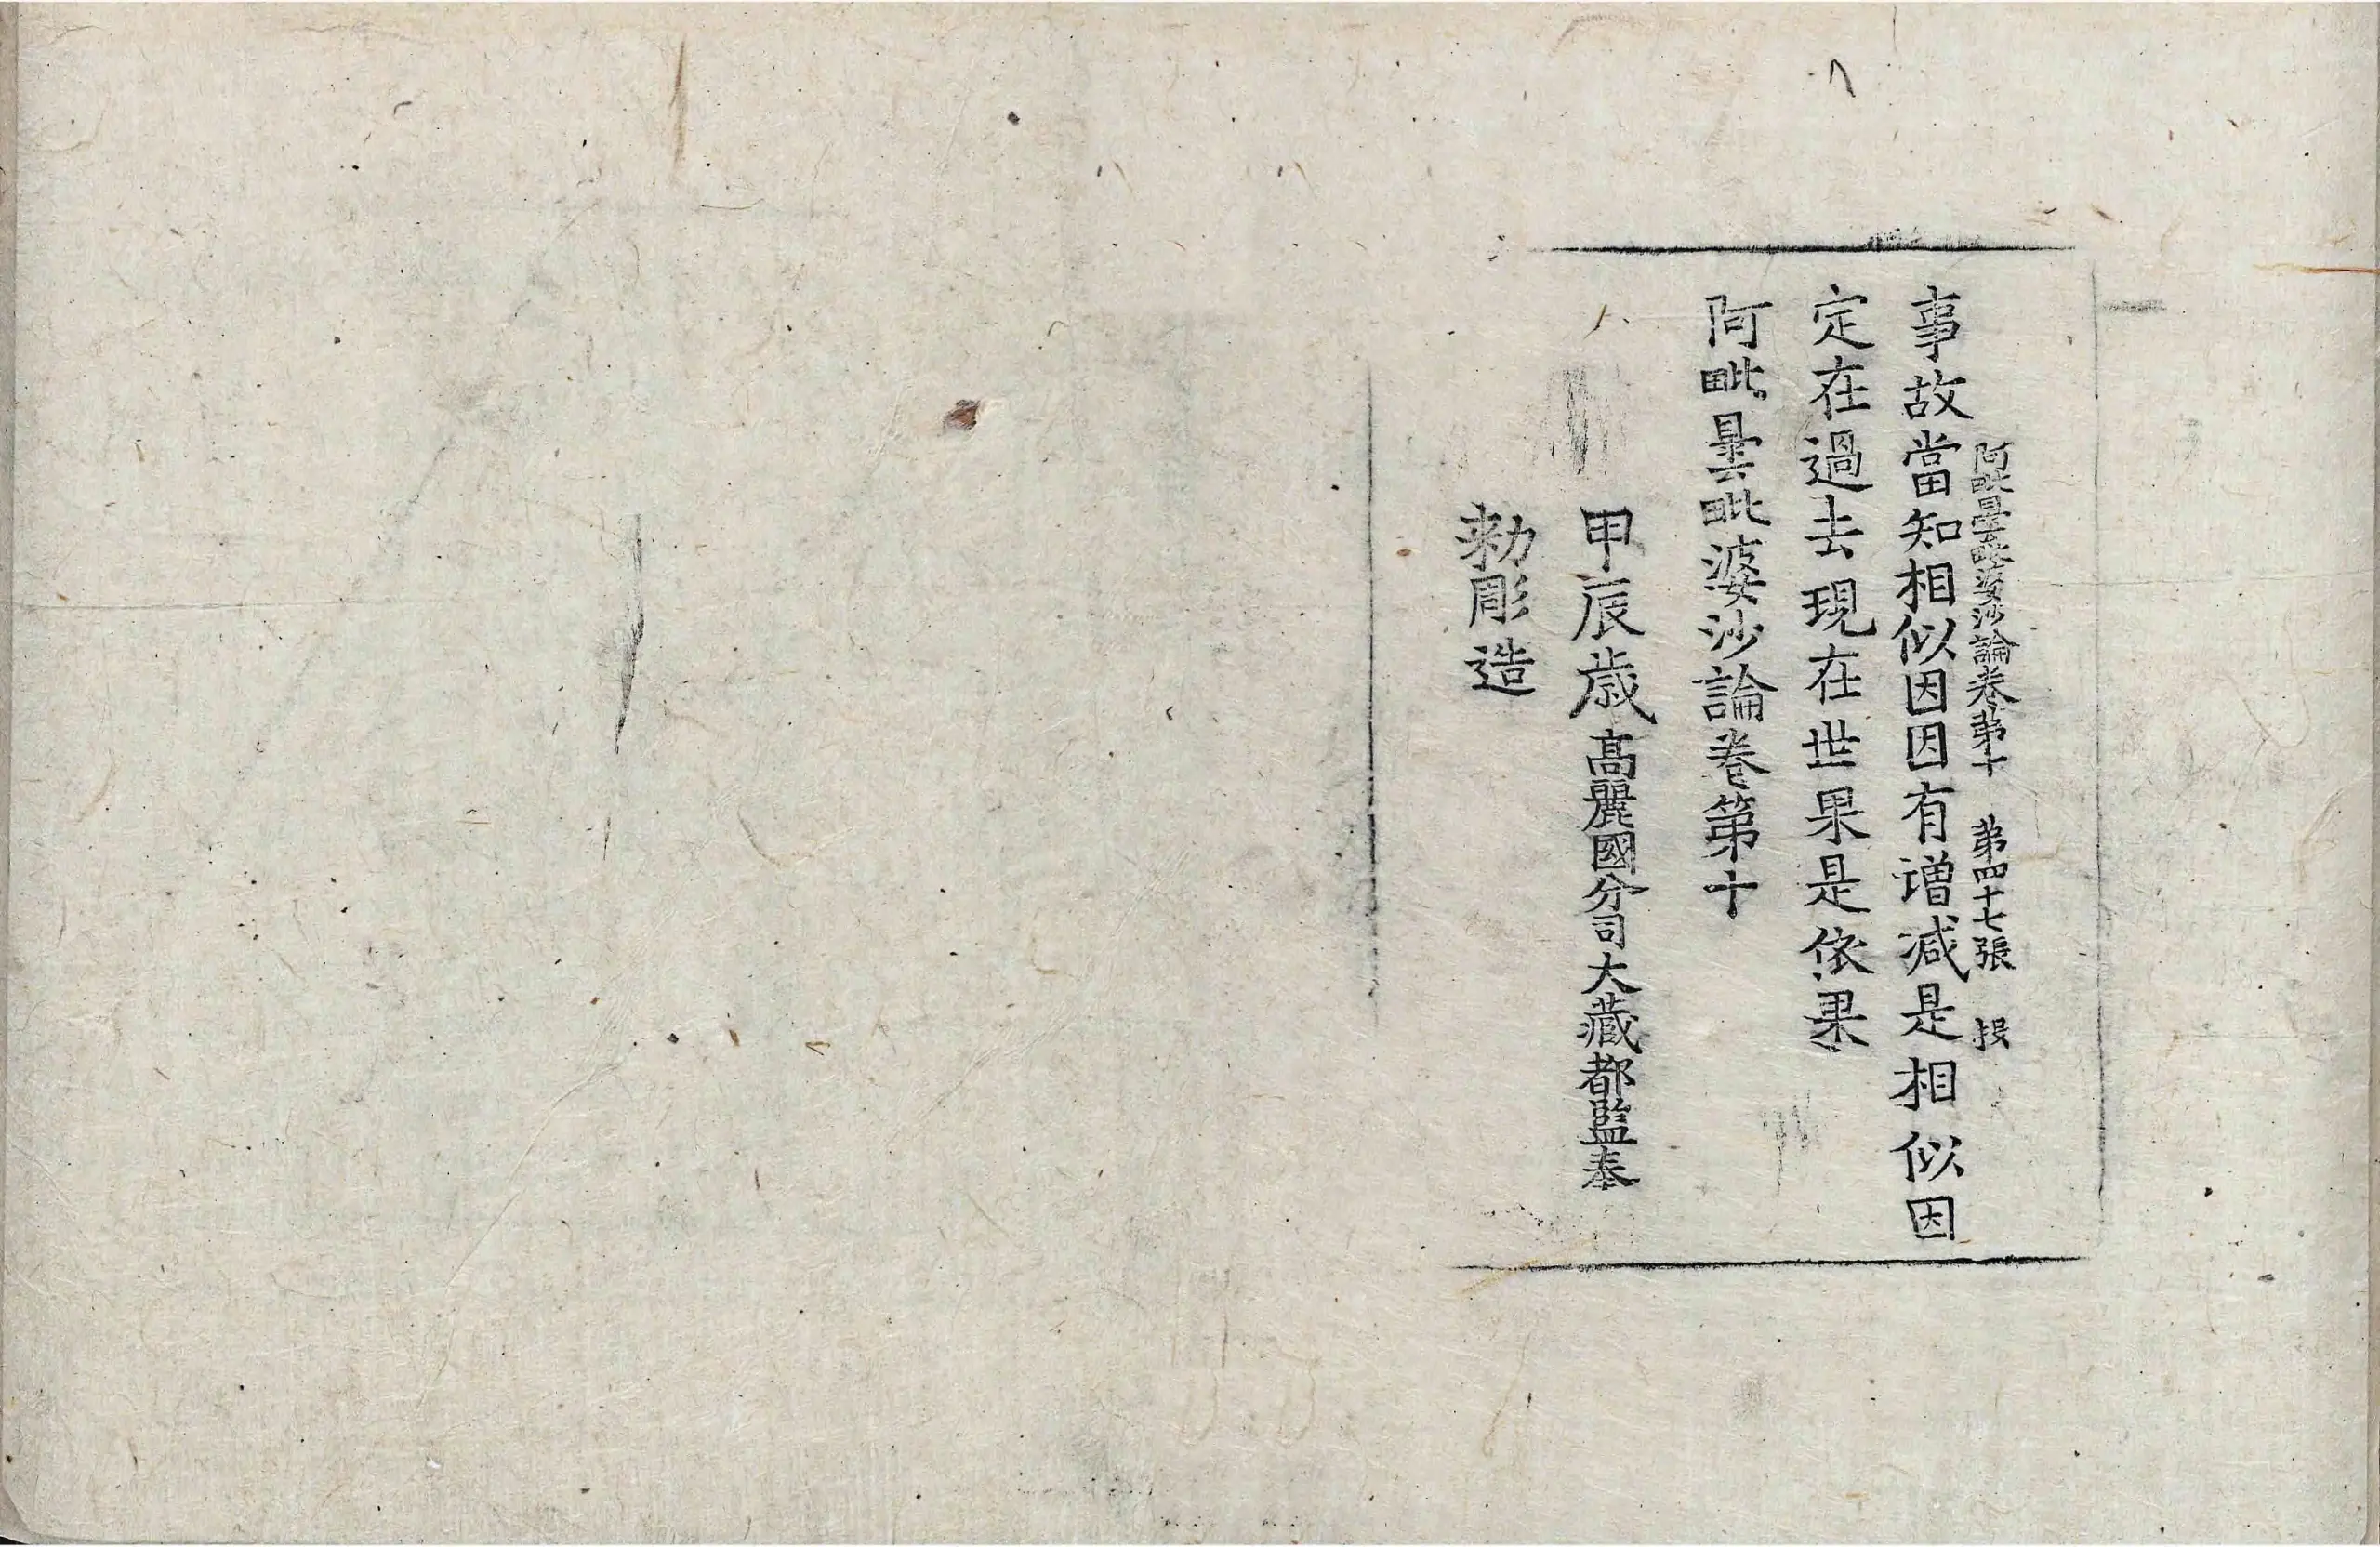 阿毗曇毗婆沙論卷第十　第四十七張　投
事故當知相似因因有增減是相似因
定在過去現在世果是依果
阿毗曇毗婆沙論卷第十
甲辰歲高麗國分司大藏都監奉
勑彫造